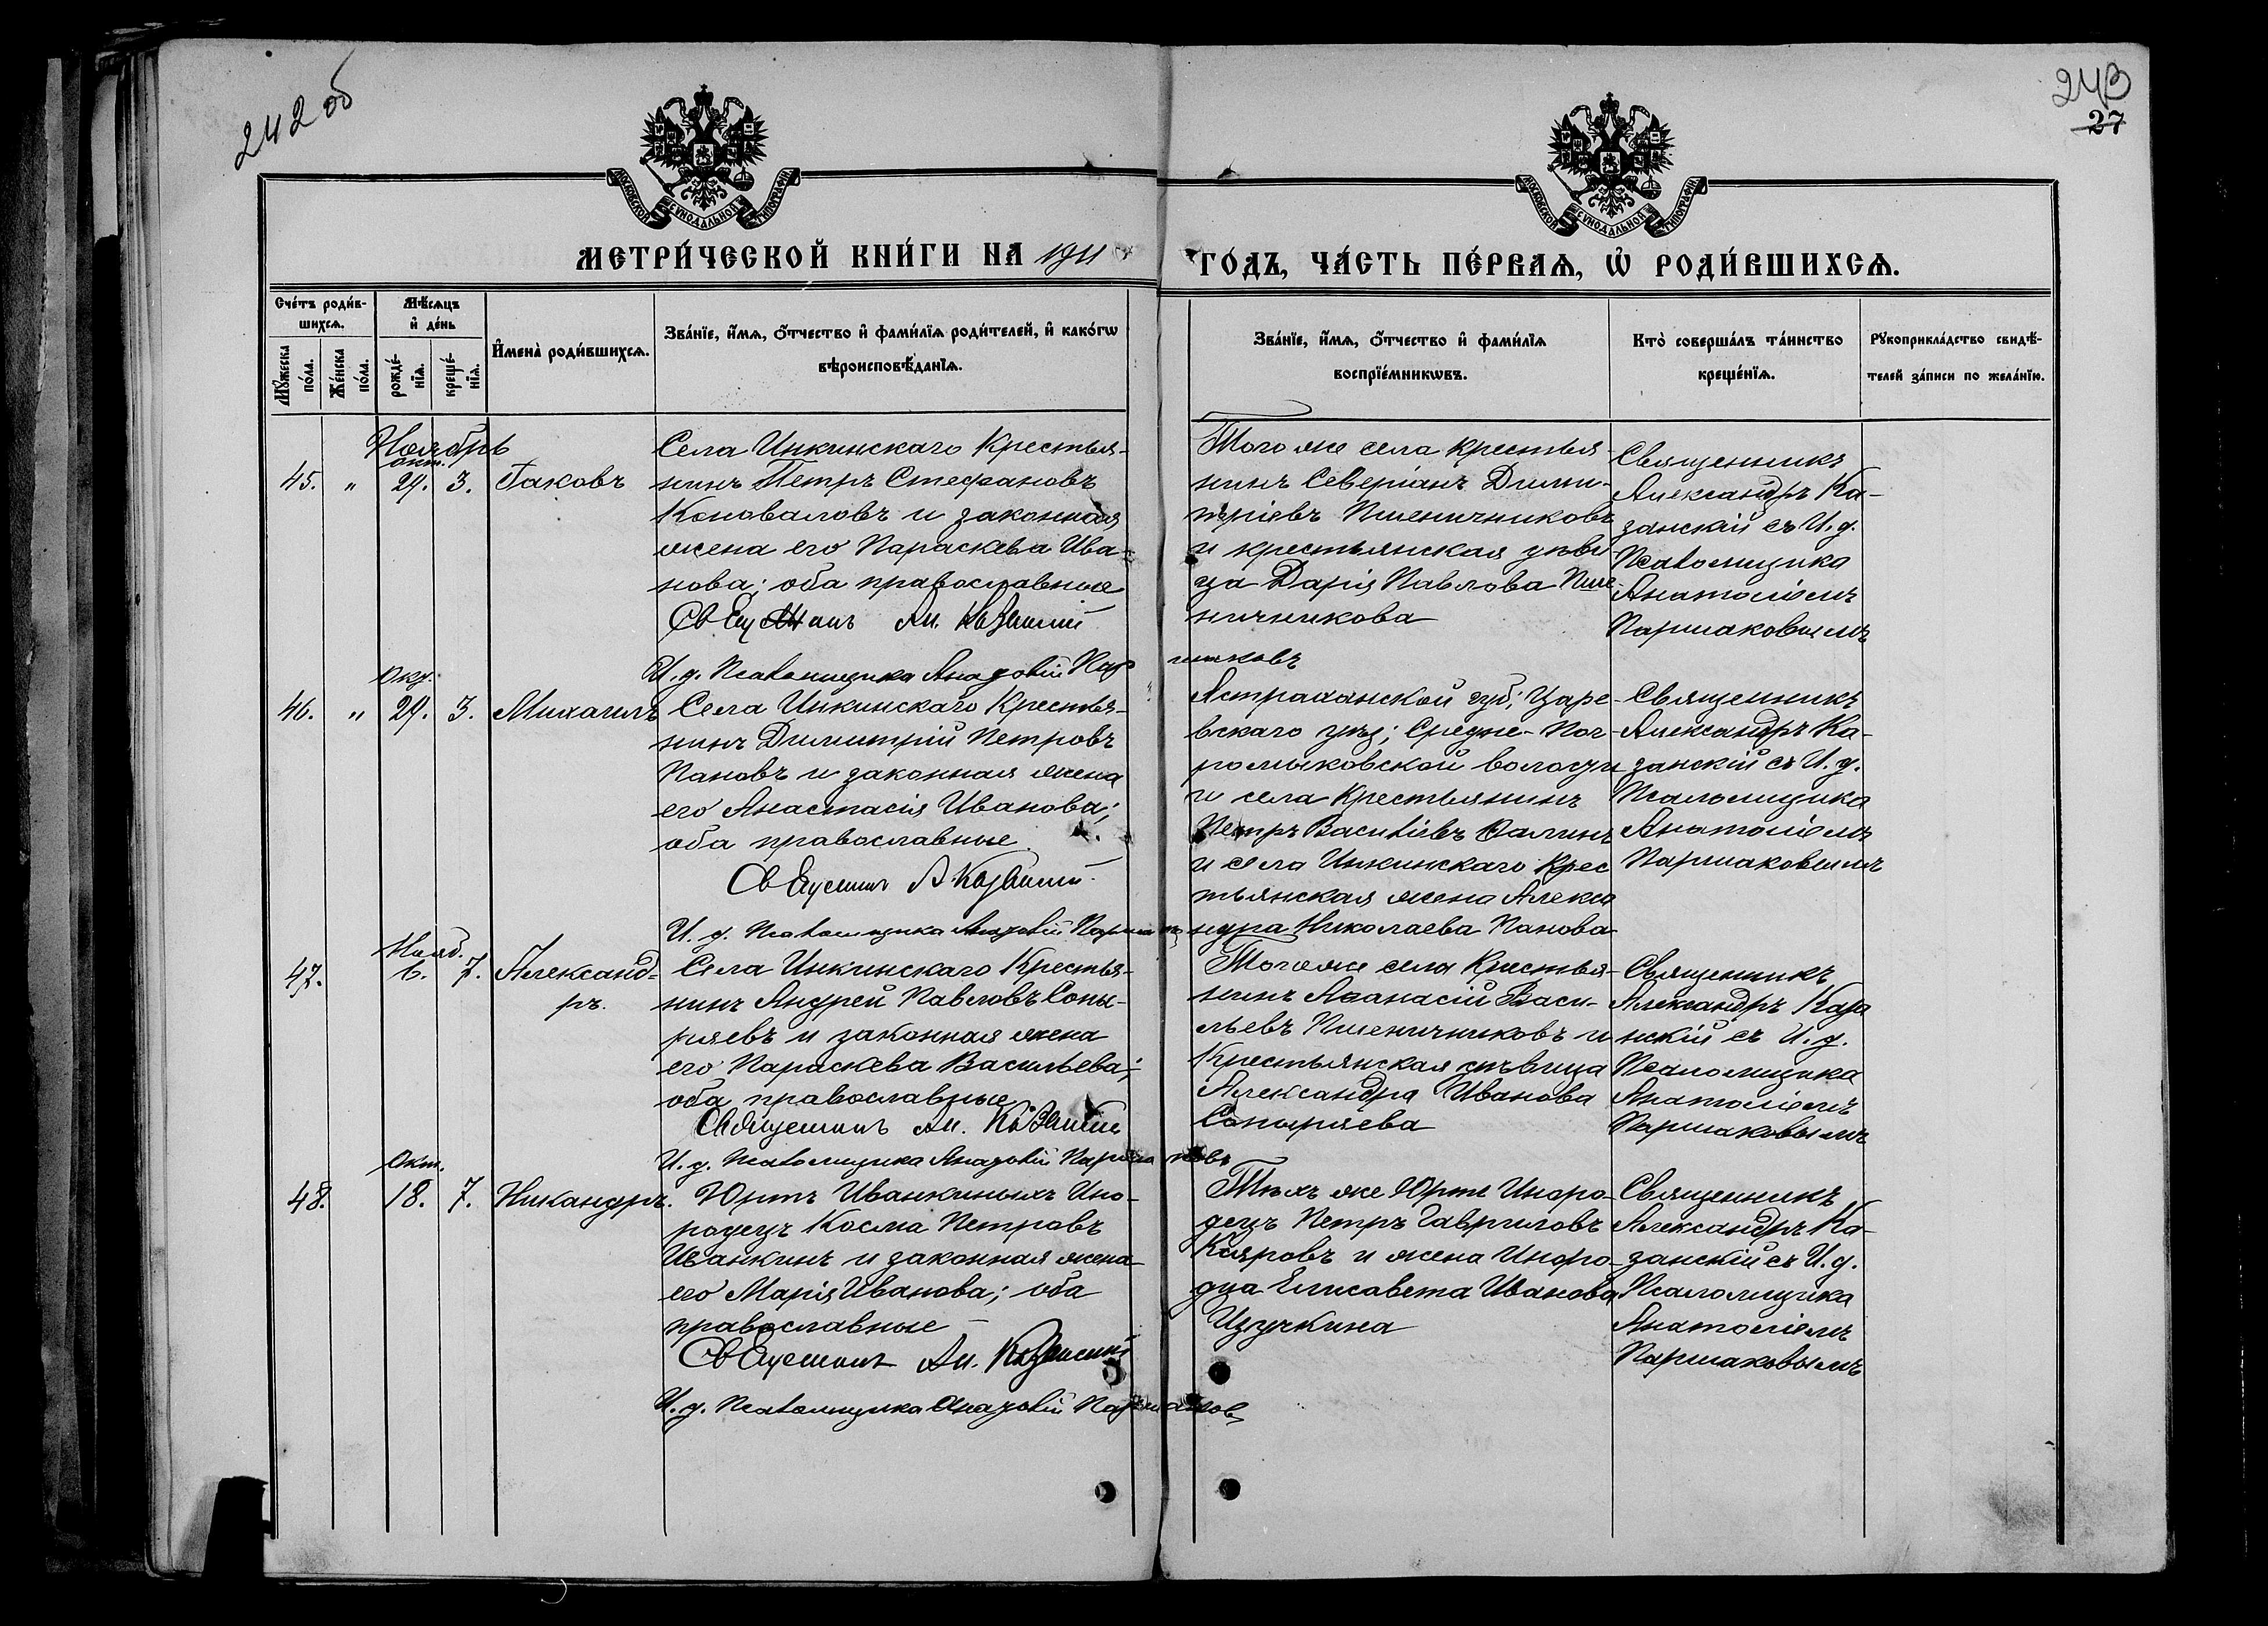 242 об
243
27
МОСКОВСКОЙ СѴНОДАЛЬНОЙ ТИПОГРАФІИ
МОСКОВСКОЙ СѴНОДАЛЬНОЙ ТИПОГРАФІИ
МЕТРИ́ЧЕСКОЙ КНИ́ГИ НА 1911
ГО́ДЪ, ЧА́СТЬ ПЕ́РВАѦ, Ѽ РОДИ́ВШИХСѦ.
Сче́тъ роди́в-
шихсѧ.
Мꙋ́жеска по́ла.
Же́нска по́ла.
Мѣ́сѧцъ
и҆ де́нь
рожде́-
нїѧ.
креще́-
нїѧ.
И҆мена̀ роди́вшихсѧ.
Зва́нїе, и҆́мѧ, ѻ҆́тчество и҆ фами́лїѧ роди́телей, и҆ како́гѡ
вѣроисповѣ́данїѧ.
Зва́нїе, и҆́мѧ, ѻ҆́тчество и҆ фами́лїѧ
воспрїе́мникѡвъ.
Кто̀ соверша́лъ та́инство
креще́нїѧ.
Рꙋкоприкла́дство свидѣ́-
телей за́писи по жела́нїю.
Ноябрь
окт.
45. " 29. 3. Іаковъ
Села Инкинскаго Крестья-
нинъ Петръ Стефановъ
Коноваловъ и законная
жена его Параскева Ива-
нова; оба православные
Священникъ Ал. Казанскій
И. д. Псаломщика Анатолій Пар
шаковъ
Того же села крестья-
нинъ Северіанъ Дими-
тріевъ Пшеничниковъ
и крестьянская дѣви-
ца Дарія Павлова Пше-
ничникова
Священникъ
Александръ Ка-
занскій съ И. д.
Псаломщика
Анатоліемъ
Паршаковымъ
Окт.
46. " 29. 3. Михаилъ
Села Инкинскаго Крестья-
нинъ Димитрій Петровъ
Пановъ и законная жена
его Анастасія Иванова;
оба православные.
Священникъ А. Казанскій.
И. д. Псаломщика Анатолій Паршаковъ
Астраханской губ; Царе-
вскаго уѣз; Средне-Пог-
ромыковской волости
и села Крестьянинъ
Петръ Василіевъ
и села Инкинскаго Крес
тьянская жена Алекса
ндра Николаева Панова
Священникъ
Александръ Ка-
занскій съ И. д.
Псаломщика
Анатоліемъ
Паршаковымъ
Нояб.
47. 6. 7. Александ-
ръ.
Села Инкинскаго Крестья-
нинъ Андрей Павловъ Соны-
ряевъ и законная жена
его Параскева Васильева;
оба православные
Священникъ Ал. Казанскій
И. д. Псаломщика Анатолій Паршаковъ
Того же села Крестья-
нинъ Аѳанасій Васи-
льевъ Пшеничниковъ и
Крестьянская дѣвица
Александра Иванова
Соныряева
Священникъ
Александръ Каза
нскій съ И. д.
Псаломщика
Анатоліемъ
Паршаковымъ
Окт.
48. 18. 7. Никандръ.
Юртъ Иванкиныхъ Ино-
родецъ Косма Петровъ
Иванкинъ и законная жена
его Марія Иванова; оба
православные —
Священникъ Ал. Казанскій
И. д. Псаломщика Анатолій Паршаковъ
Тѣхъ же Юртъ Иноро-
децъ Петръ Гавриловъ
Кояровъ и жена Иноро-
дца Елисавета Иванова
Изучкина
Священникъ
Александръ Ка-
занскій съ И. д.
Псаломщика
Анатоліемъ
Паршаковымъ